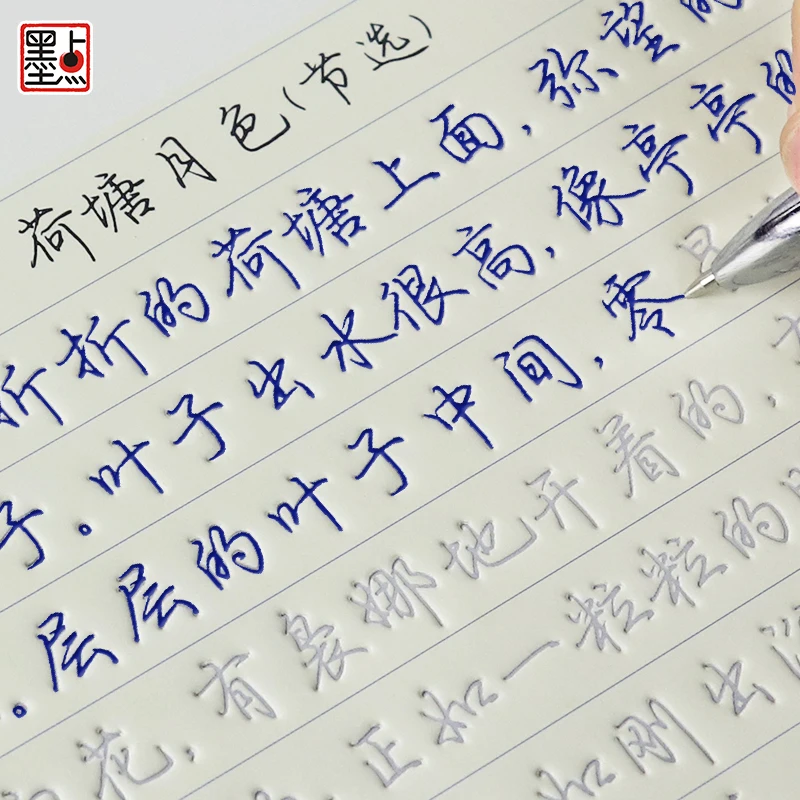 墨点
荷塘月色(节选)
折折的荷塘上面,弥望的
子。叶子出水很高,像亭亭的
。层层的叶子中间,零星
花,有袅娜地开着的,有
,正如一粒粒的明
如刚出浴